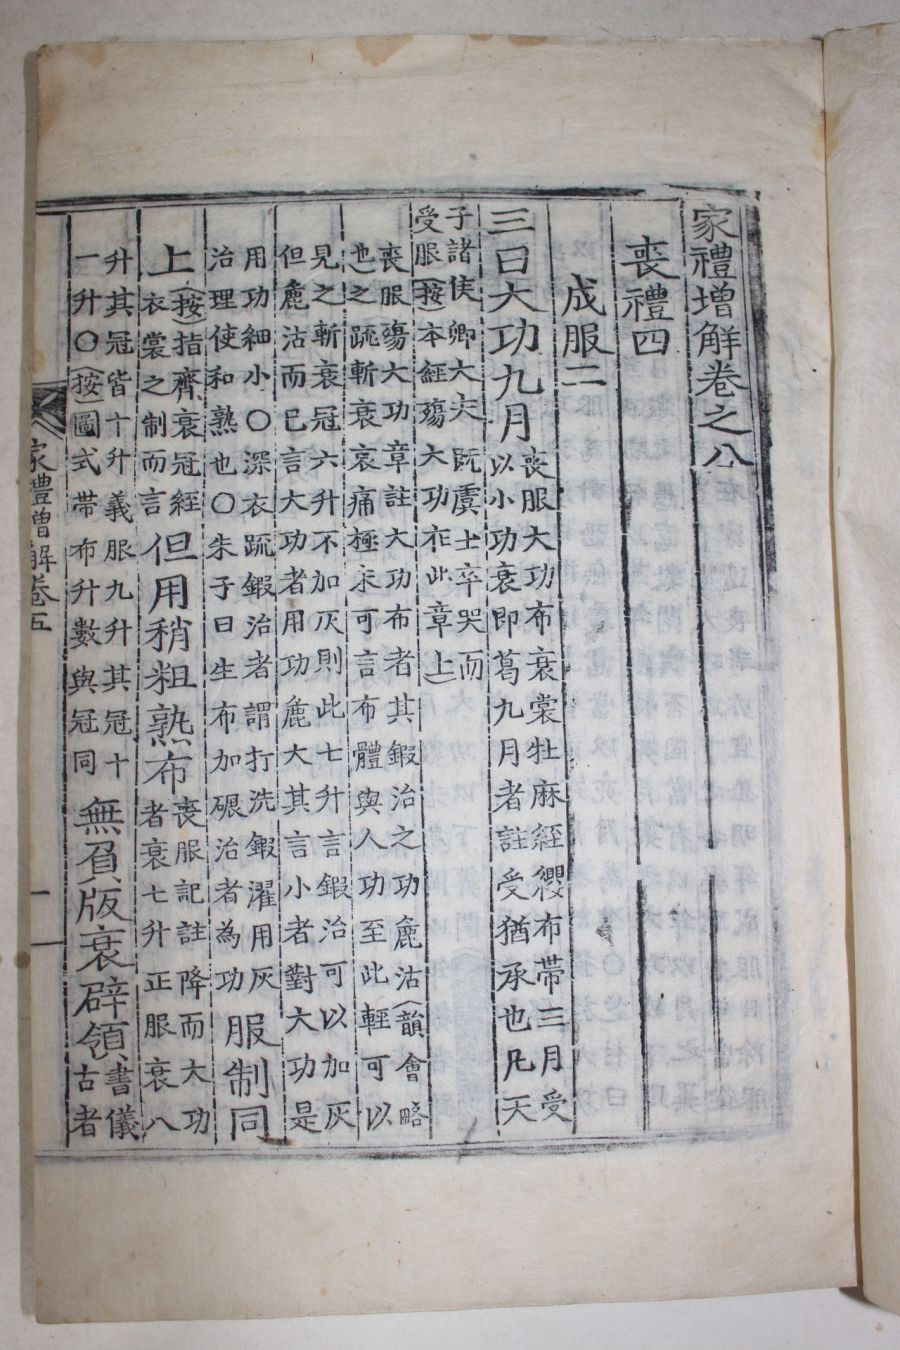 家禮增解卷之八
喪禮四
成服二
三曰大功九月
喪服大功布衰裳牡麻絰纓布帶三月受
以小功衰即葛九月者註受猶承也凡天
子諸侯卿大夫既虞士卒哭而
受服(按)本經殤大功在此章上
喪服殤大功章註大功布者其鍜治之功麁沽(韻會略
也)之疏斬衰哀痛極未可言布體與人功至此輕可以
見之斬衰冠六升不加灰則此七升言鍜治可以加灰
但麁沽而已言大功者用功麁大其言小者對大功是
用功細小○深衣疏鍜治者謂打洗鍜濯用灰
治理使和熟也○朱子曰生布加碾治者為功
服制同
上
(按)指齊衰冠絰
衣裳之制而言
但用稍粗熟布
喪服記註降而大功
者衰七升正服衰八
升其冠皆十升義服九升其冠十
一升○(按)圖式帶布升數與冠同
無負版衰辟領
書儀
古者
家禮增解卷五
一